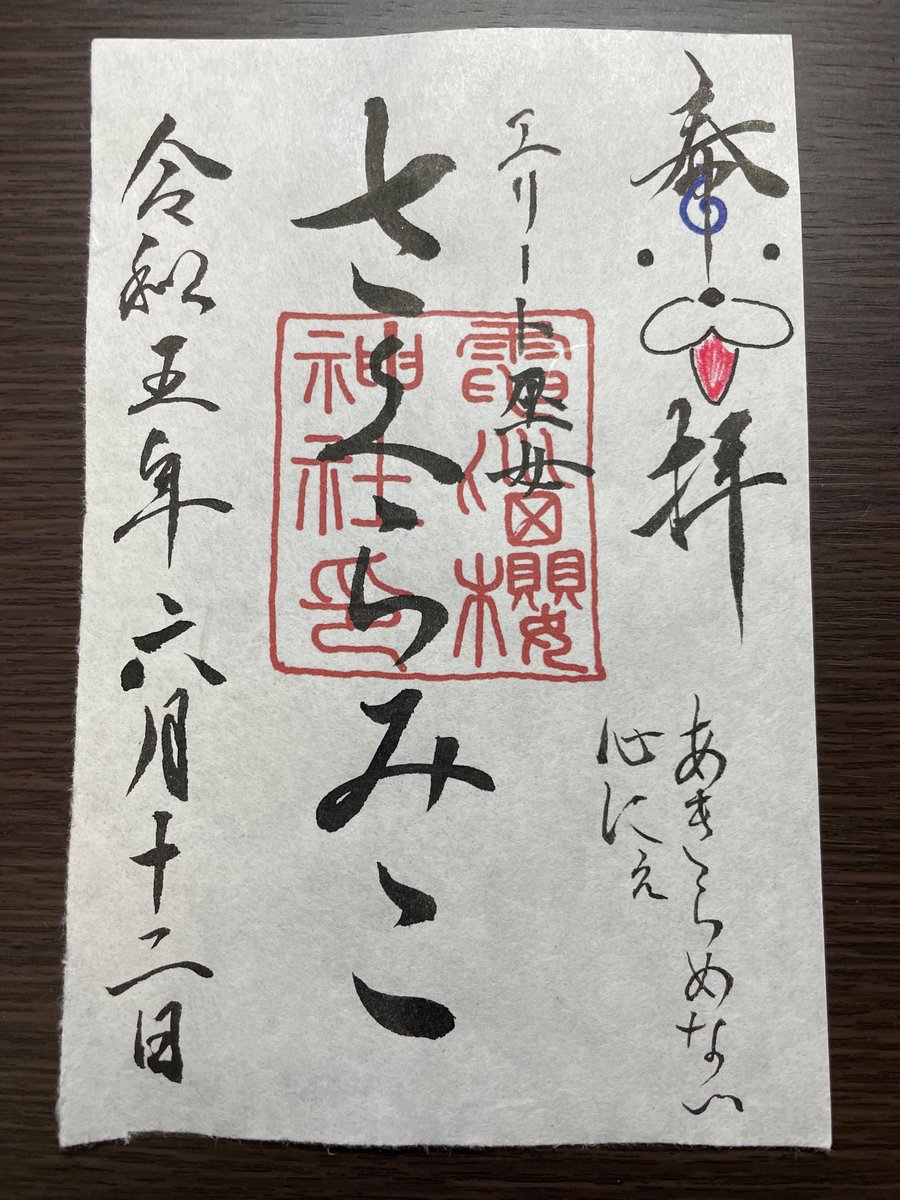 奉拝
あきらめない
心にぇ
エリート巫女
さくらみこ
電脳櫻
神社印
令和五年六月十二日